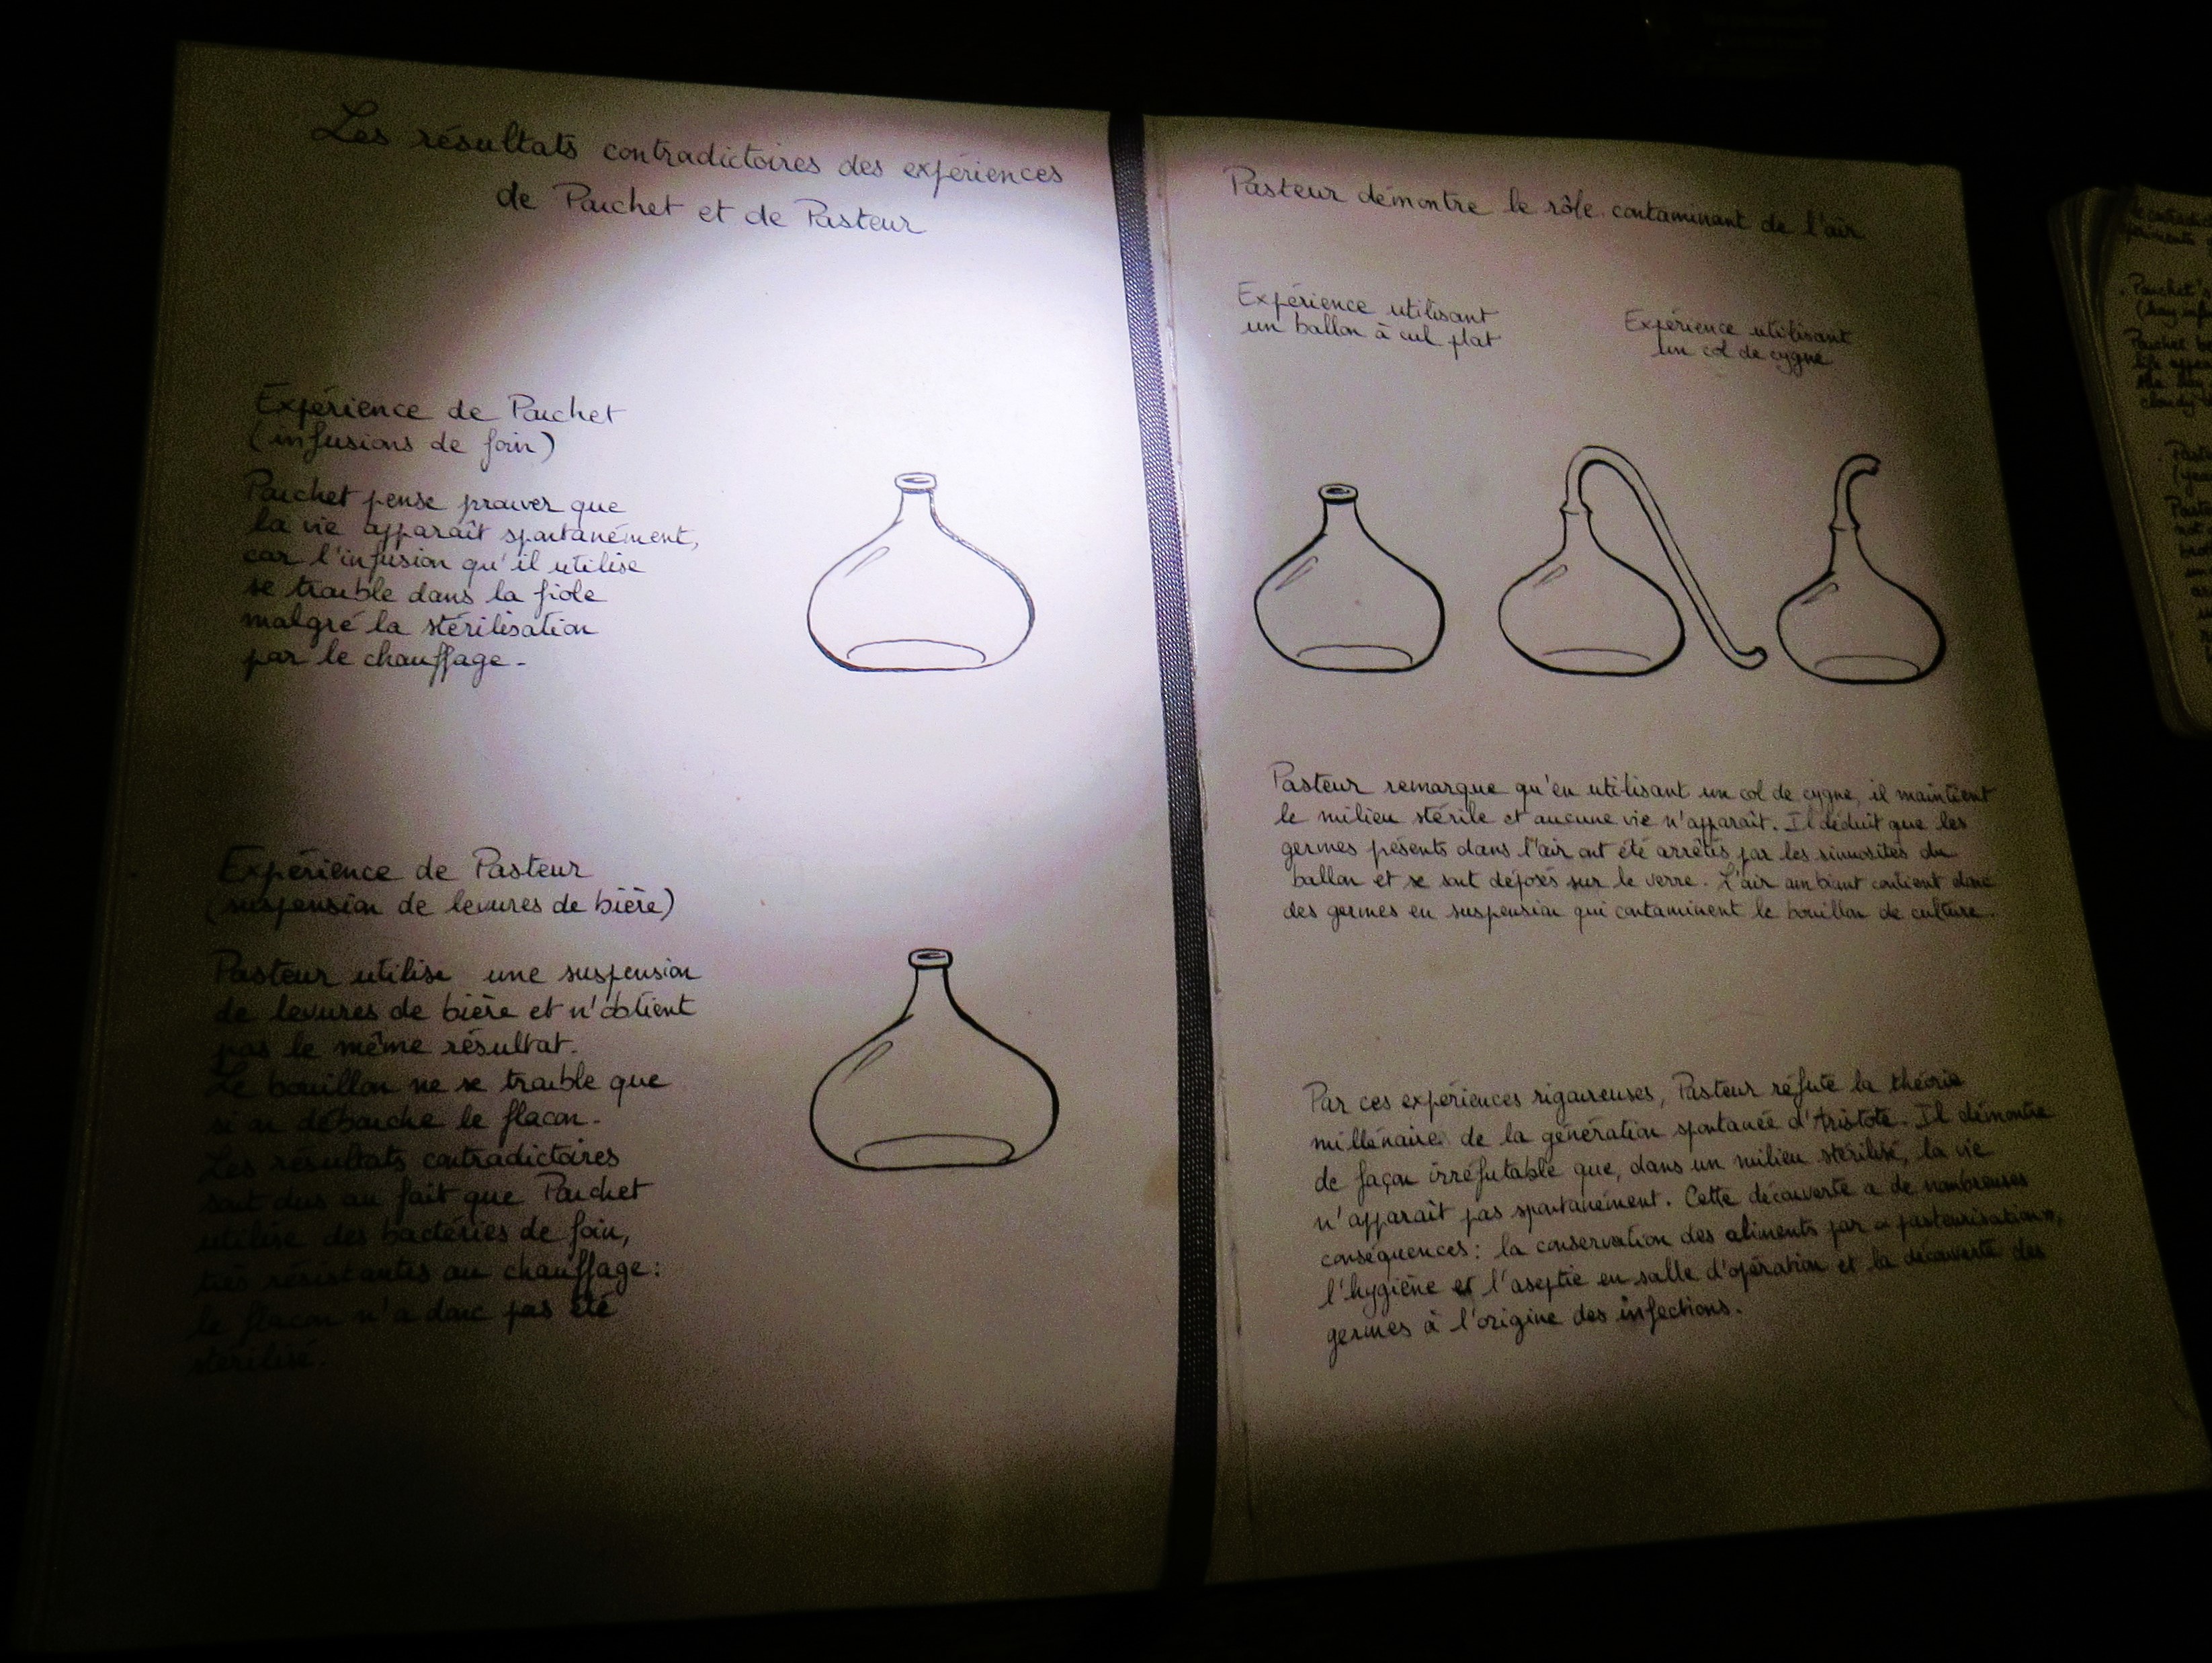 Les résultats contradictoires des expériences
de Pouchet et de Pasteur
Expérience de Pouchet
(infusions de foin)
Pouchet pense prouver que
la vie apparaît spontanément,
car l'infusion qu'il utilise
se trouble dans la fiole
malgré la stérilisation
par le chauffage.
Expérience de Pasteur
(suspension de levures de bière)
Pasteur utilise une suspension
de levures de bière et n'obtient
pas le même résultat.
Le bouillon ne se trouble que
si on débouche le flacon.
Les résultats contradictoires
sont dus au fait que Pouchet
utilise des bactéries de foin,
très résistantes au chauffage:
le flacon n'a donc pas été
stérilisé.
Pasteur démontre le rôle contaminant de l'air
Expérience utilisant
un ballon à cul plat
Expérience utilisant
un col de cygne
Pasteur remarque qu'en utilisant un col de cygne, il maintient
le milieu stérile et aucune vie n'apparaît. Il déduit que les
germes présents dans l'air ont été arrêtés par les sinuosités du
ballon et se sont déposés sur le verre. L'air ambiant contient donc
des germes en suspension qui contaminent le bouillon de culture.
Par ces expériences rigoureuses, Pasteur réfute la théorie
millénaire de la génération spontanée d'Aristote. Il démontre
de façon irréfutable que, dans un milieu stérilisé, la vie
n'apparaît pas spontanément. Cette découverte a de nombreuses
conséquences: la conservation des aliments par « pasteurisation »,
l'hygiène et l'aseptie en salle d'opération et la découverte des
germes à l'origine des infections.
Pouchet's
(hay
Pouchet
life
the hay
cloudy